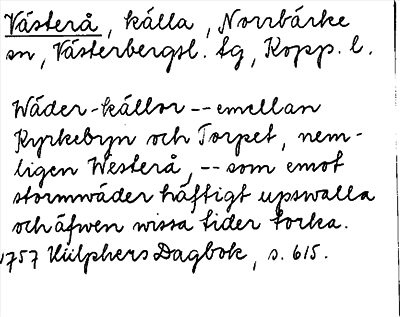 Västerå, källa, Norrbärke
sn, Västerbergsl. tg, Kopp. l.
Wäder-källor -- emellan
Kyrkebyn och Torpet, nem-
ligen Westerå, -- som emot
stormwäder häftigt upswalla
och äfwen wissa tider torka.
1757 Hülphers Dagbok, s. 615.